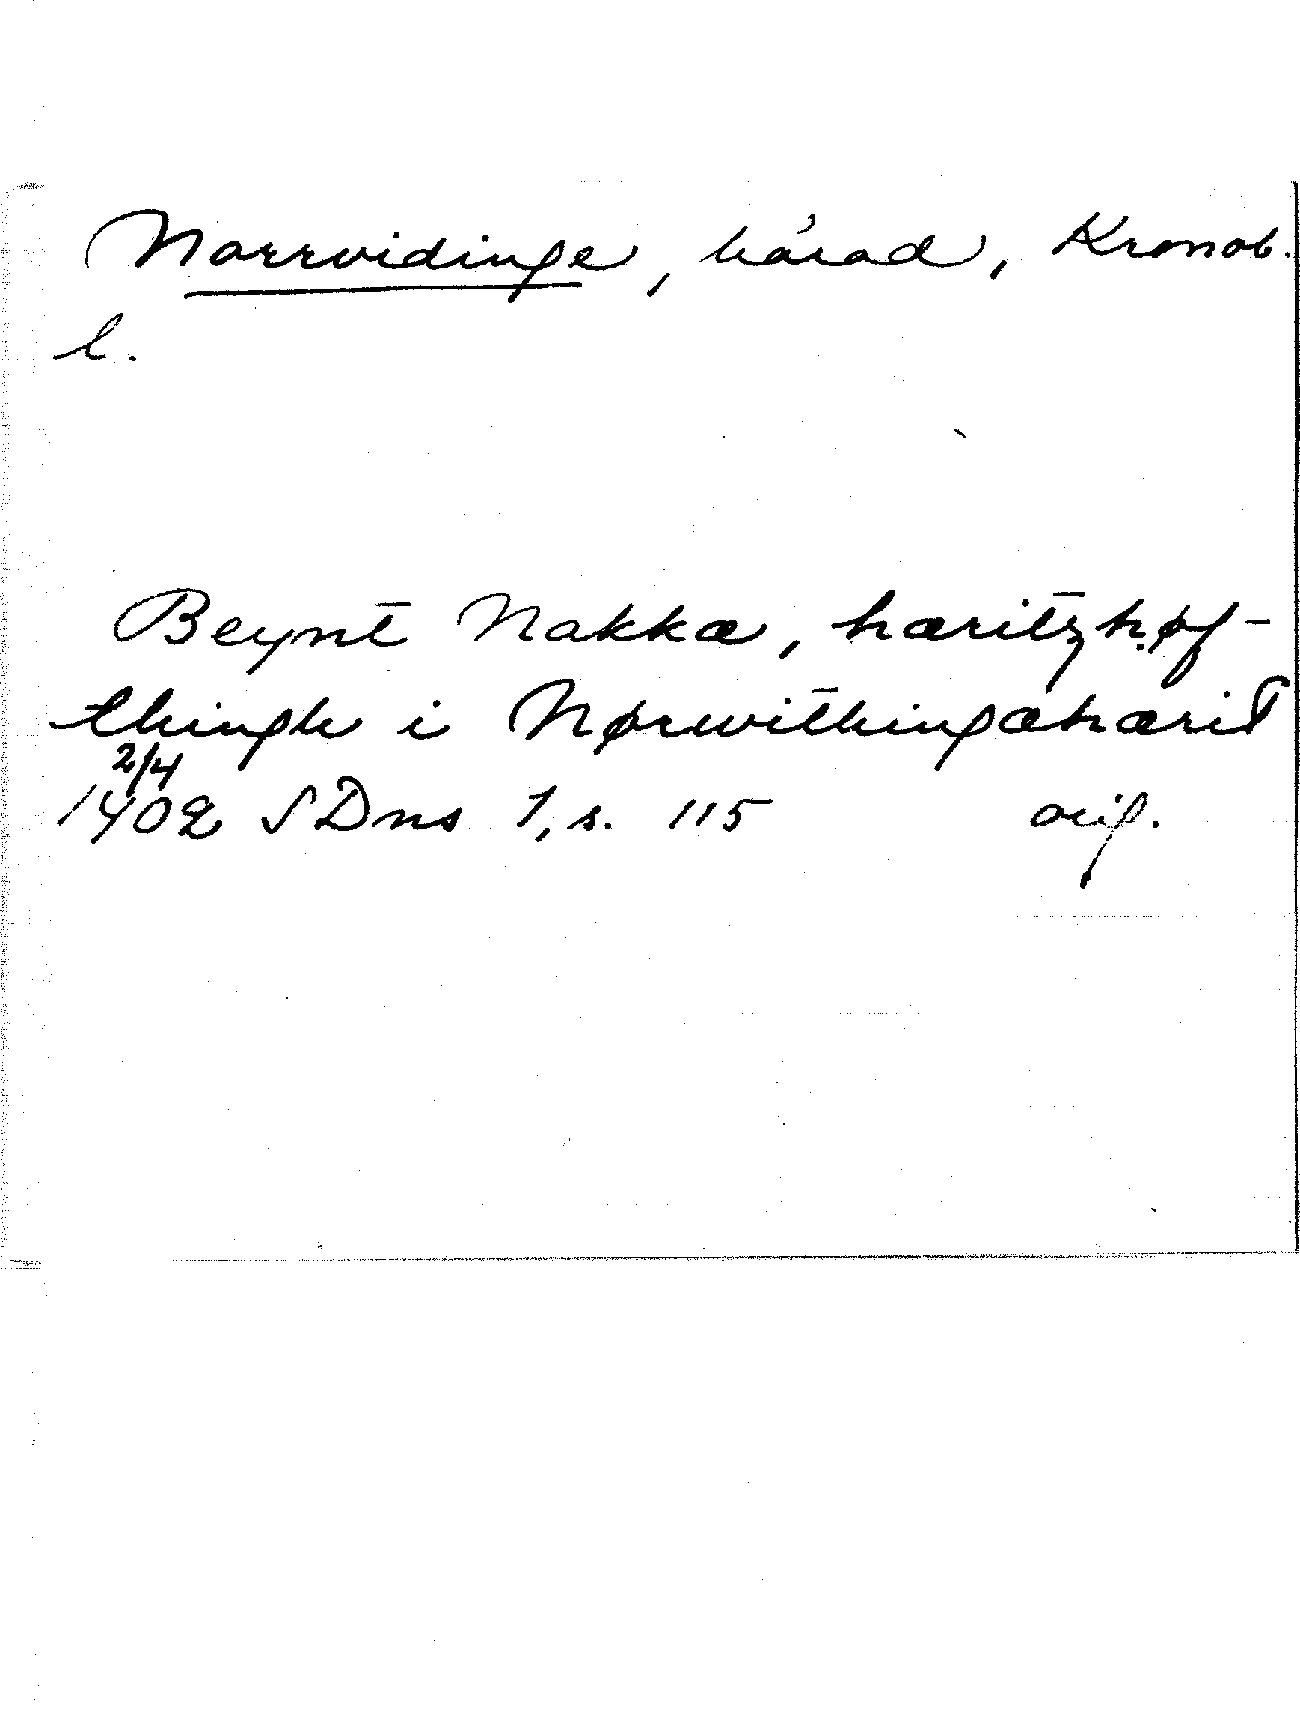 Norrvidinge, härad, Kronob.
l.
Beynt̄ Nakkæ, hæritz̄høf-
thingh i Nørwith̄ingæhærid̄
2/4
1402 SDns 1, s. 115 orig.